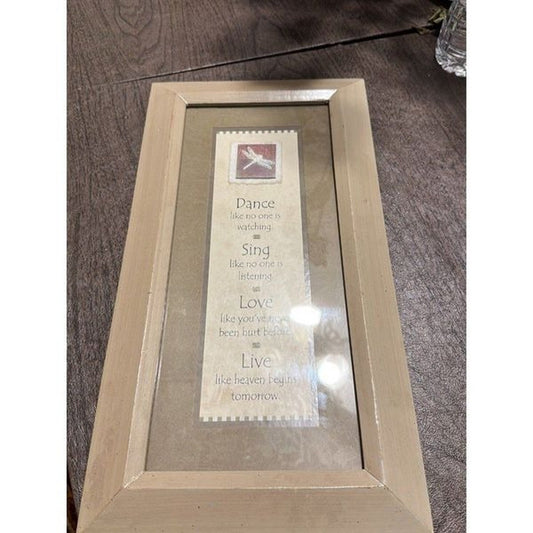 Dance
like no one is
watching.
Sing
like no one is
listening.
Love
like you've never
been hurt before.
Live
like heaven begins
tomorrow.